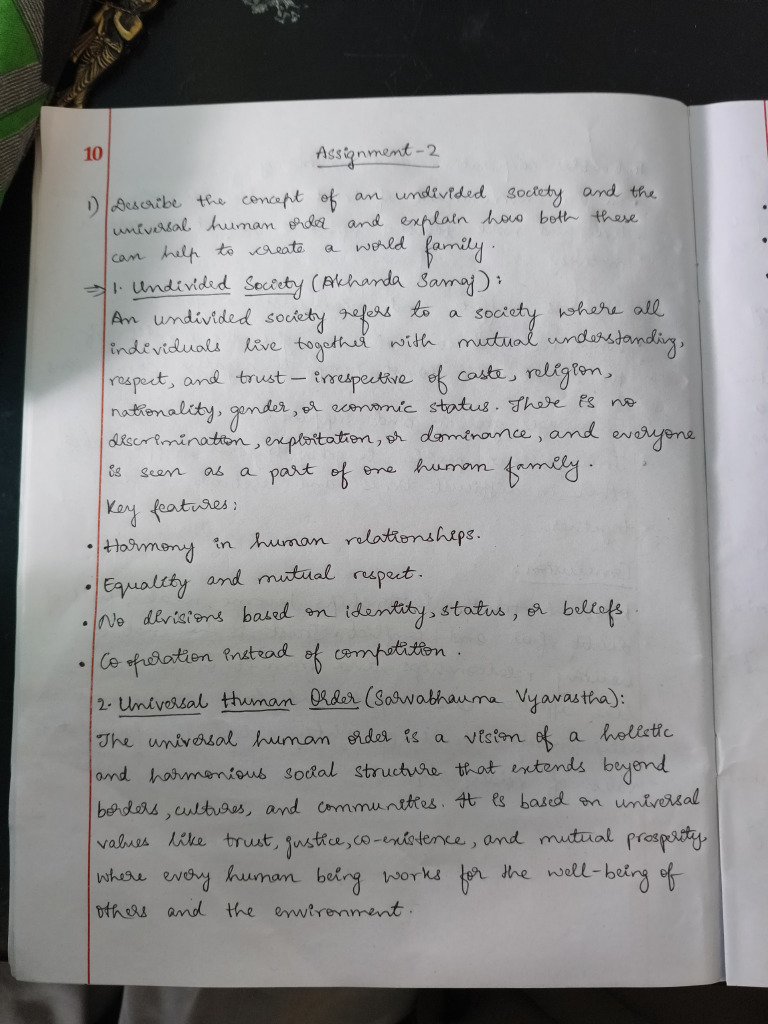 10
Assignment-2
1) Describe the concept of an undivided society and the
universal human order and explain how both these
can help to create a world family.
⇒ 1. Undivided Society (Akhanda Samaj):
An undivided society refers to a society where all
individuals live together with mutual understanding,
respect, and trust — irrespective of caste, religion,
nationality, gender, or economic status. There is no
discrimination, exploitation, or dominance, and everyone
is seen as a part of one human family.
Key features:
• Harmony in human relationships.
• Equality and mutual respect.
• No divisions based on identity, status, or beliefs.
• Co operation instead of competition.
2. Universal Human Order (Sarvabhauma Vyavastha):
The universal human order is a vision of a holistic
and harmonious social structure that extends beyond
borders, cultures, and communities. It is based on universal
values like trust, justice, co-existence, and mutual prosperity
where every human being works for the well-being of
others and the environment.